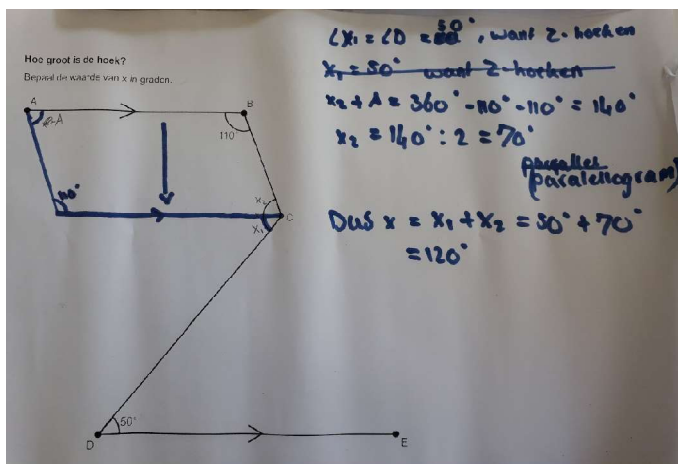 Hoe groot is de hoek?
Bepaal de waarde van x in graden.
A
B
A
110
110°
x₂
C
x₁
50°
D
E
∠x₁ = ∠D = 50°, want Z-hoeken
x₁ = 50° want Z-hoeken
x₂ + A = 360° - 110° - 110° = 140°
x₂ = 140° : 2 = 70°
parallel
(paralellogram)
Dus x = x₁ + x₂ = 50° + 70°
= 120°